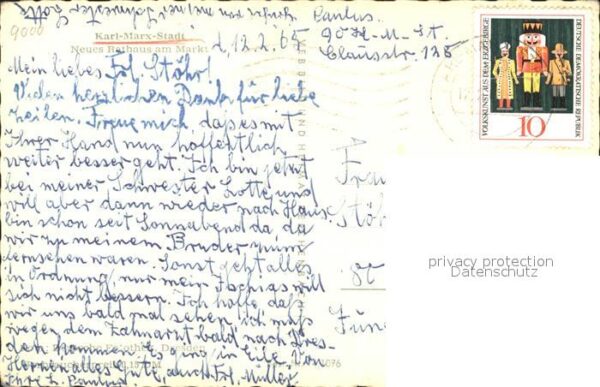 9000
Karl-Marx-Stadt
Neues Rathaus am Markt
Paulus.
90 K-M-St.
Clausstr 128
d. 12.2.65
Mein liebes Frl. Stöhr!
Vielen herzlichen Dank für liebe
Zeilen. Freue mich, dass es mit
Ihrer Hand nun hoffentlich
weiter besser geht. Ich bin jetzt
bei meiner Schwester Lotte und
will aber dann wieder nach Haus
bin schon seit Sonnabend da, da
wir zu meinem Bruder zum
fernsehen waren. Sonst geht alles
in Ordnung, nur mein Ischias will
sich nicht bessern. Ich hoffe daß
wir uns bald mal sehen, ich muß
wegen dem Zahnarzt bald nach Dres-
den kommen. Es ging in Eile. Von
Herzen alles Gute, auch Frl. Müller.
Ihre L. Paulus.
Stöh
VOLKSKUNST AUS DEM ERZGEBIRGE
DEUTSCHE DEMOKRATISCHE REPUBLIK
10
privacy protection
Datenschutz